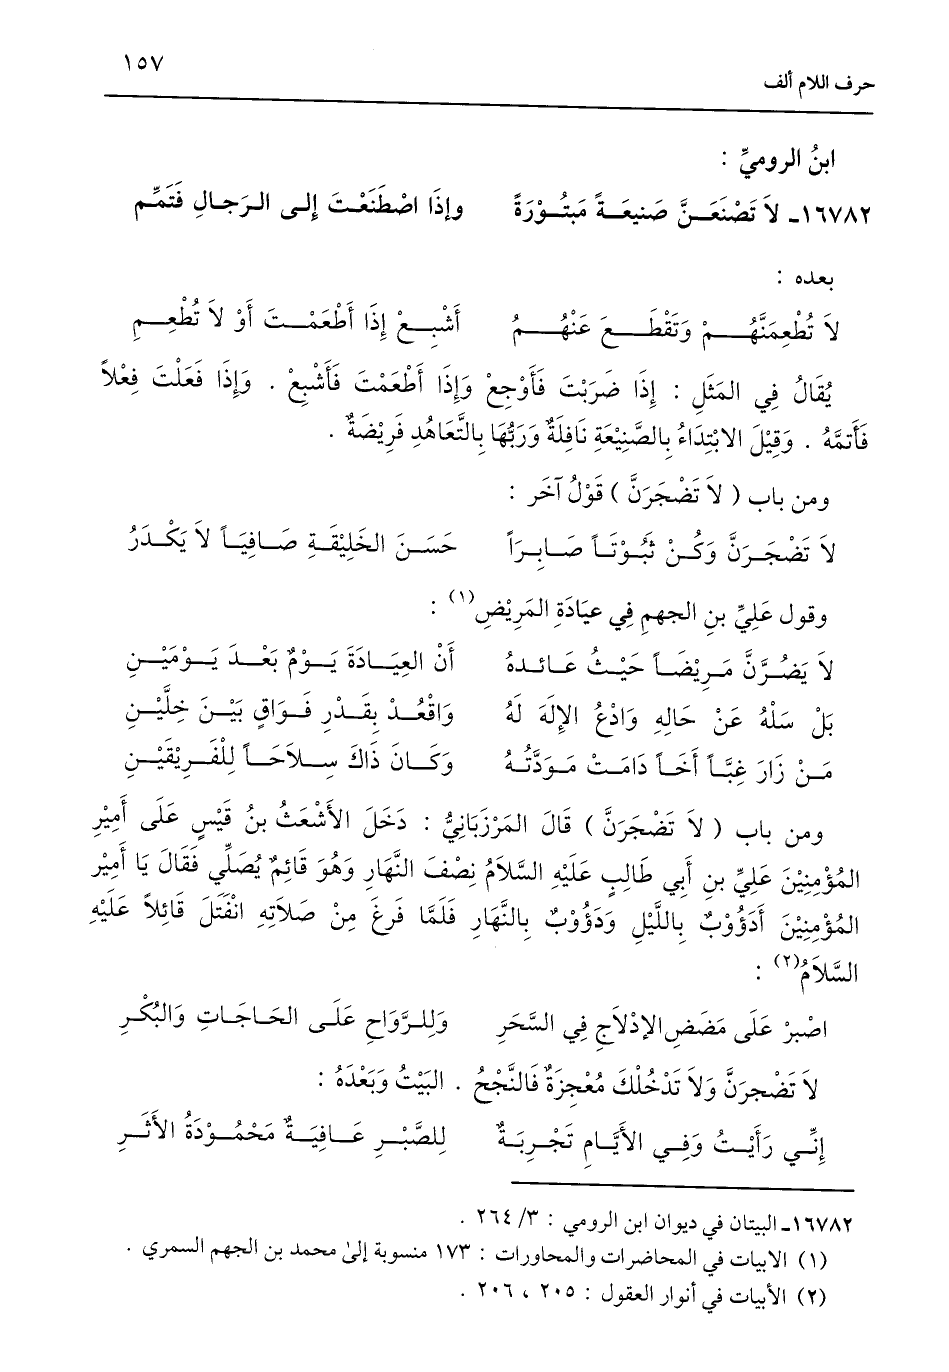 ١٥٧
حرف اللام ألف
ابنُ الروميِّ :
١٦٧٨٢ـ لاَ تَصْنَعَنَّ صَنيعَةً مَبْتُوْرَةً وإذَا اصْطَنَعْتَ إلى الرَجالِ فَتَمِّم
بعده :
لاَ تُطْعِمَنَّهُمْ وَتَقْطَعَ عَنْهُمُ أَشْبِعْ إِذَا أَطْعَمْتَ أَوْ لاَ تُطْعِمِ
يُقَالُ فِي المَثَلِ : إِذَا ضَرَبْتَ فَأَوْجِعْ وَإِذَا أَطْعَمْتَ فَأَشْبِعْ . وَإِذَا فَعَلْتَ فِعْلاً
فَأَتمَّهُ . وَقِيْلَ الابْتِدَاءُ بِالصَّنِيْعَةِ نَافِلَةٌ وَرَبُّهَا بِالتَّعَاهُدِ فَرِيْضَةٌ .
ومن باب ( لاَ تَضْجَرَنَّ ) قَوْلُ آخَر :
لاَ تَضْجَرَنَّ وَكُنْ ثَبُوْتَاً صَابِرَاً حَسَنَ الخَلِيْقَةِ صَافِيَاً لاَ يَكْدَرُ
وقول عَلِيِّ بنِ الجهمِ فِي عيَادَةِ المَرِيْضِ(١) :
لاَ يَضُرَّنَّ مَرِيْضَاً حَيْثُ عَائدهُ أَنْ العِيَادَةَ يَوْمٌ بَعْدَ يَوْمَيْنِ
بَلْ سَلْهُ عَنْ حَالِهِ وَادْعُ الإِلَهَ لَهُ وَاقْعُدْ بِقَدْرِ فَوَاقٍ بَيْنَ خِلَّيْنِ
مَنْ زَارَ غِبَّاً أَخَاً دَامَتْ مَوَدَّتُهُ وَكَانَ ذَاكَ سِلاَحَاً لِلْفَرِيْقَيْنِ
ومن باب ( لاَ تَضْجَرَنَّ ) قَالَ المَرْزبَانِيُّ : دَخَلَ الأَشْعَثُ بنُ قَيْسٍ عَلَى أَمِيْرِ
المُؤْمِنِيْنَ عَلِيِّ بنِ أبي طَالِبٍ عَلَيْهِ السَّلاَمُ نِصْفَ النَّهَارِ وَهُوَ قَائِمٌ يُصَلِّي فَقَالَ يَا أَمِيْر
المُؤْمِنِيْنَ أَدَؤُوْبٌ بِاللَّيْلِ وَدَؤُوْبٌ بِالنَّهَارِ فَلَمَّا فَرغَ مِنْ صَلاَتِهِ انْفَتَلَ قَائِلاً عَلَيْهِ
السَّلاَمُ(٢) :
اصْبِرْ عَلَى مَضَضِ الإِدْلاَجِ فِي السَّحَرِ وَلِلرَّوَاحِ عَلَى الحَاجَاتِ وَالبُكْرِ
لاَ تَضْجرَنَّ وَلاَ تَدْخُلْكَ مُعْجِزَةٌ فَالنُّجْحُ . البَيْتُ وَبَعْدَهُ :
إِنِّي رَأَيْتُ وَفِي الأَيَّامِ تَجْرِبَةٌ لِلصَّبْرِ عَافِيَةٌ مَحْمُوْدَةُ الأَثَرِ
١٦٧٨٢ـ البيتان في ديوان ابن الرومي : ٣/ ٢٦٤ .
(١) الابيات في المحاضرات والمحاورات : ١٧٣ منسوبة إلىٰ محمد بن الجهم السمري .
(٢) الأبيات في أنوار العقول : ٢٠٥ ، ٢٠٦ .